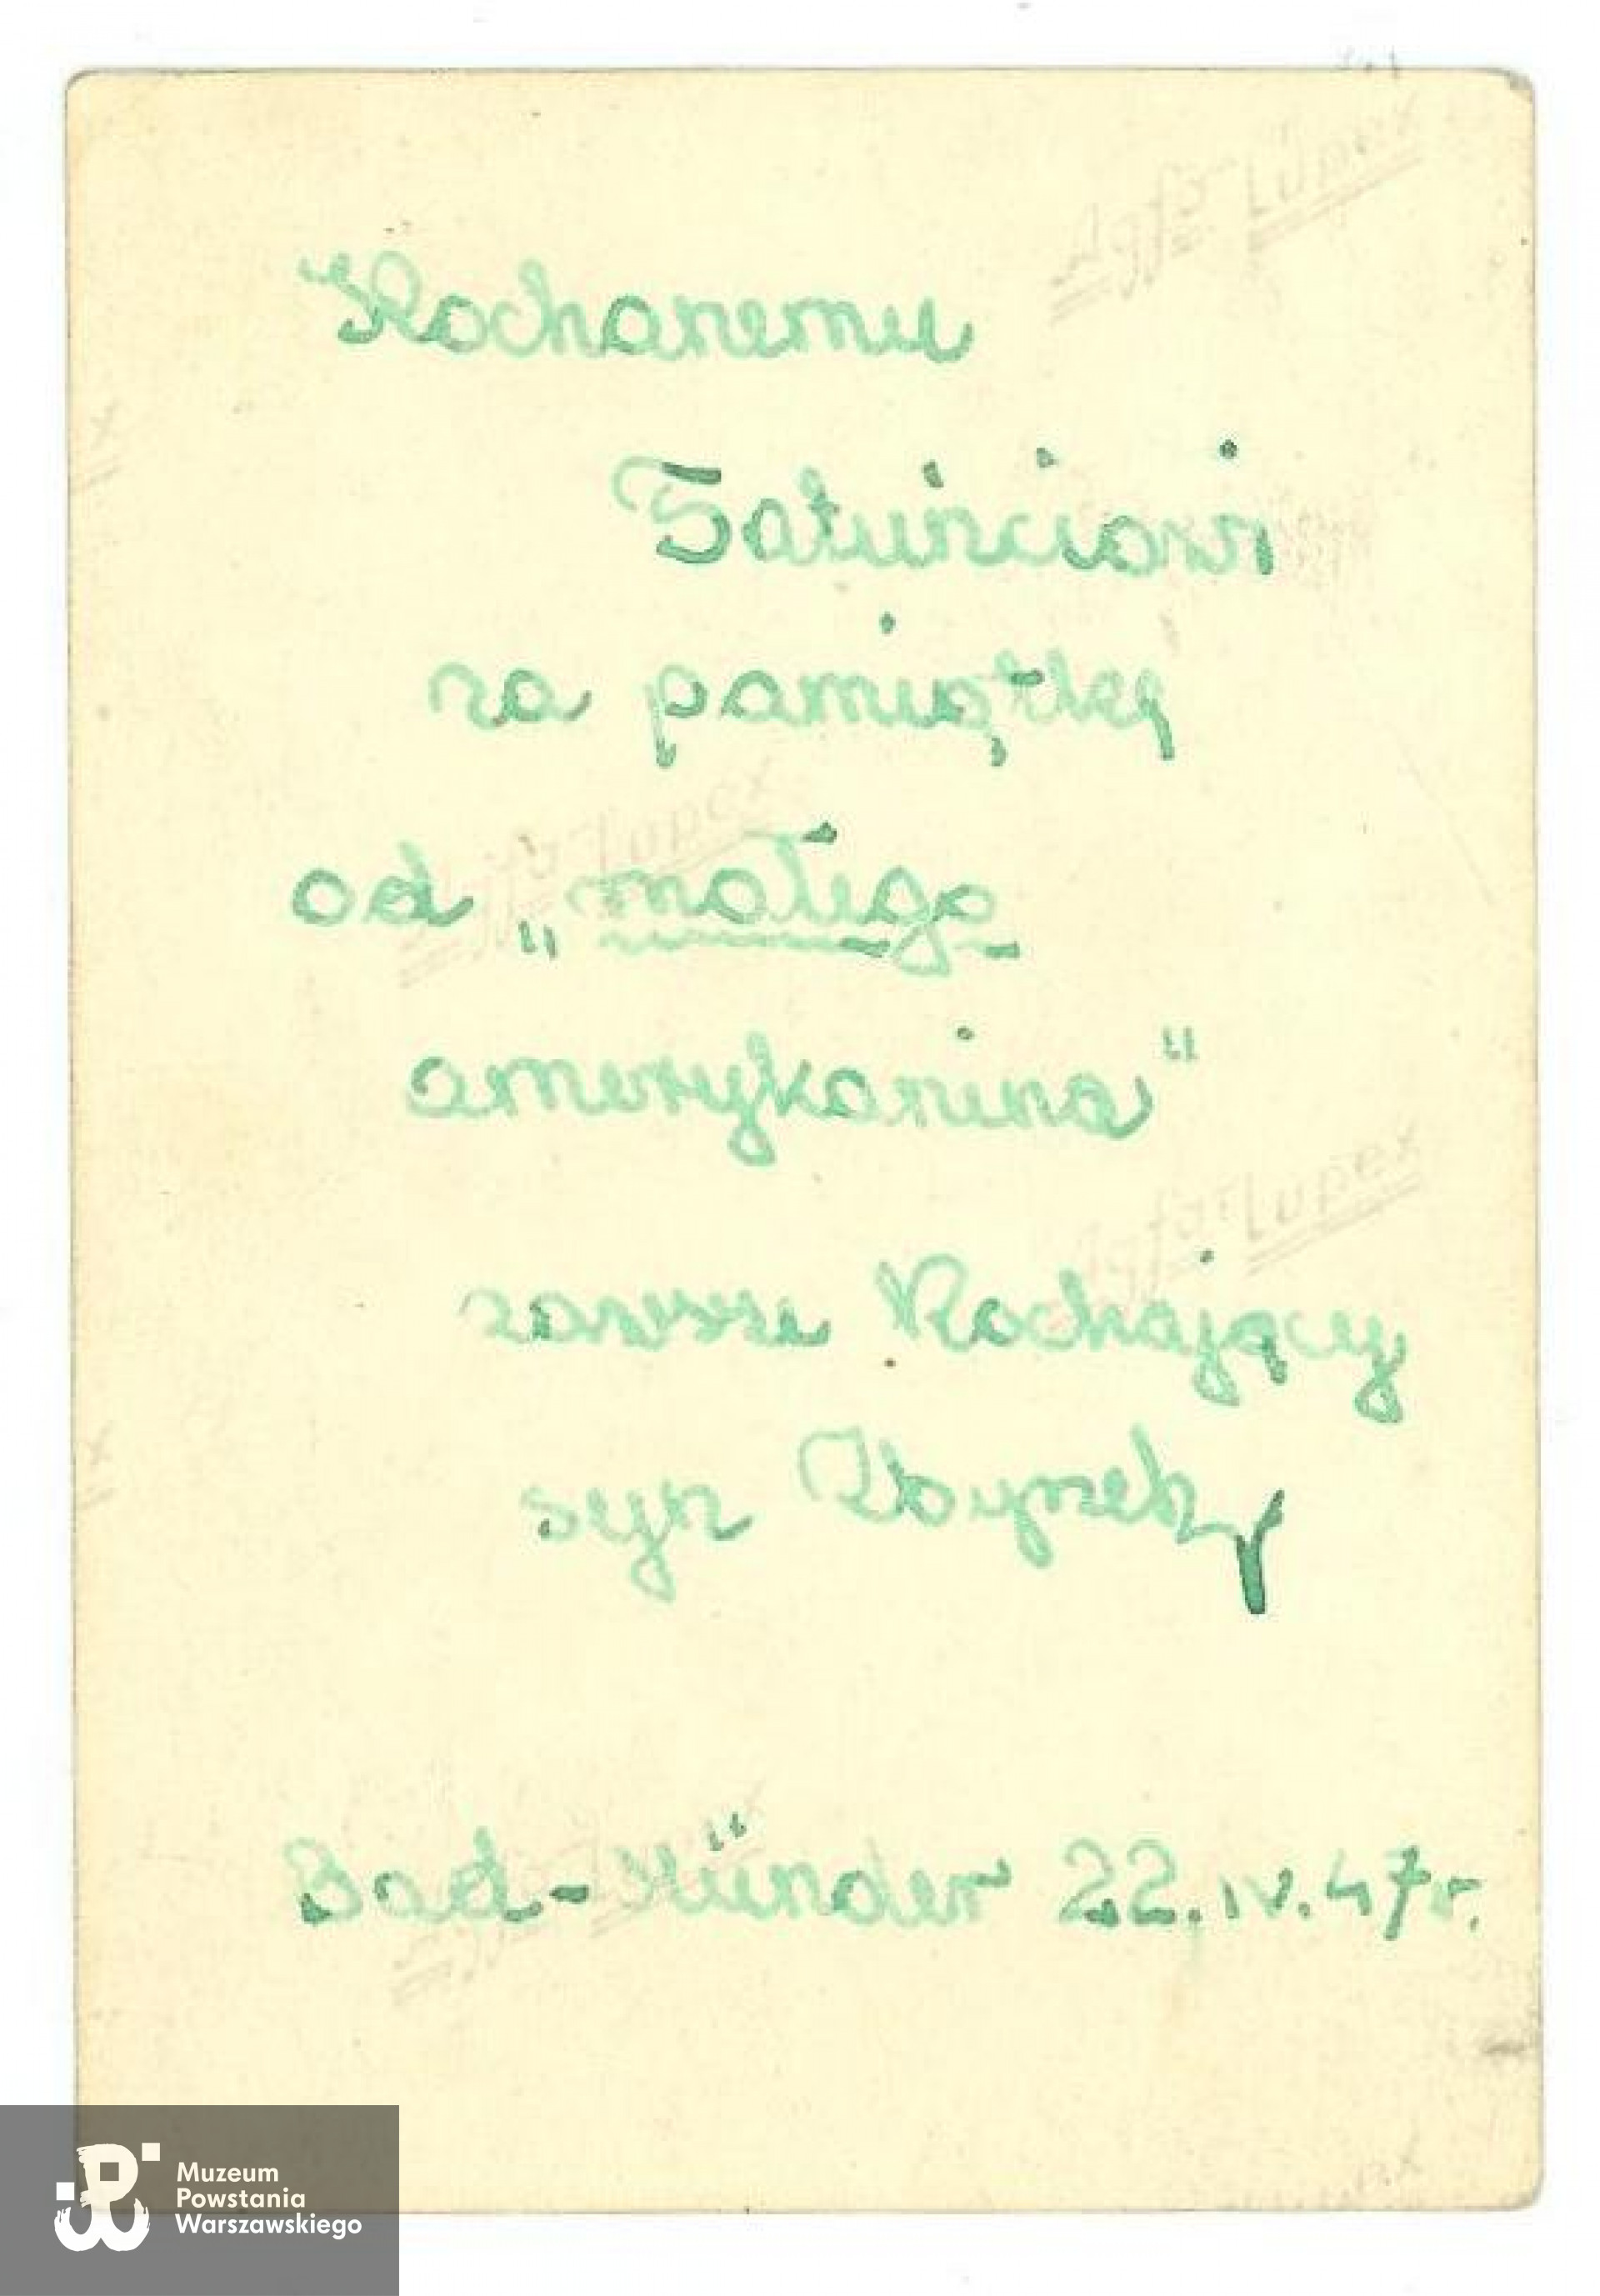 Kochanemu
Tatuńciowi
na pamiątkę
od „małego
amerykanina"
zawsze Kochający
syn Zbyszek
Bad-Münder 22.IV.47r.
Agfa-Lupex
Agfa-Lupex
Agfa-Lupex
Muzeum
Powstania
Warszawskiego